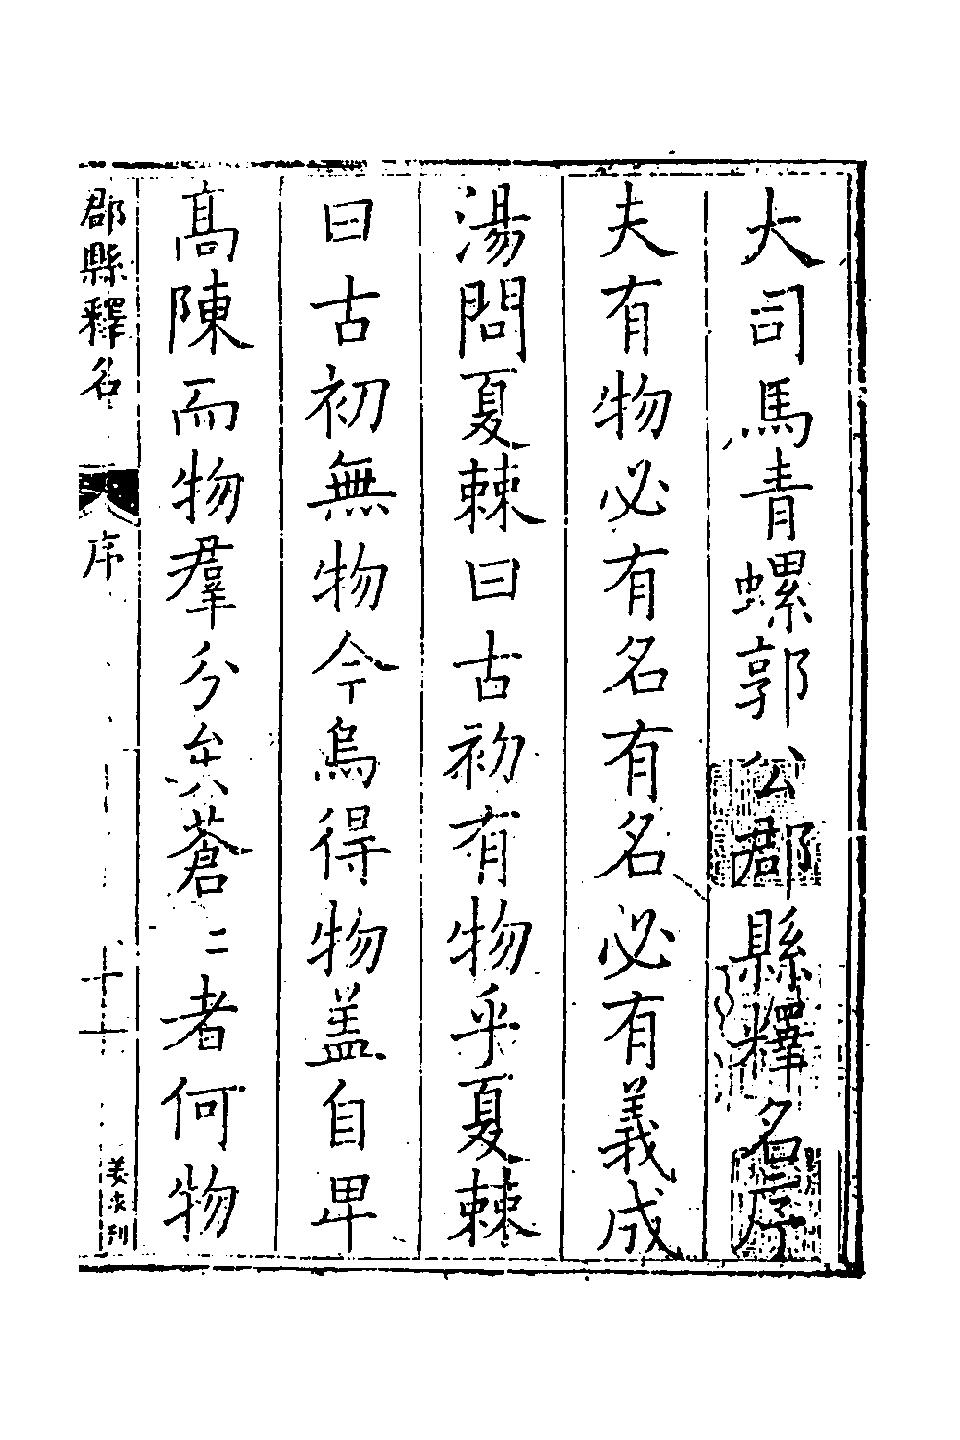 大司馬青螺郭公郡縣釋名序
夫有物必有名有名必有義成
湯問夏棘曰古初有物乎夏棘
曰古初無物今烏得物盖自卑
高陳而物羣分矣蒼〻者何物
郡縣釋名
序
姜求刊